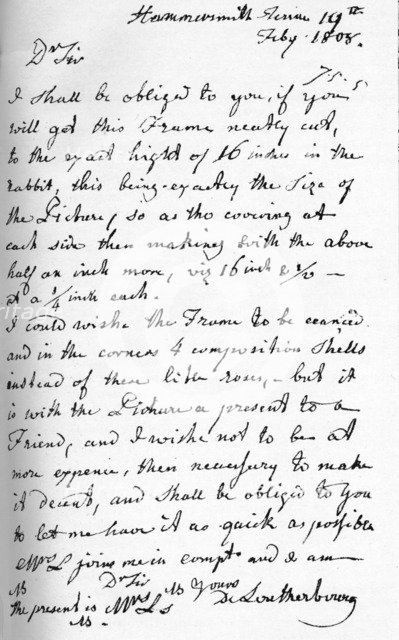 Hammersmith Terrace 19th
Feby. 1808.
Dr Sir
75.5
I shall be obliged to you, if you
will get this Frame neatly cut,
to the exact hight of 16 inches in the
rabbit, this being exactly the size of
the Picture, so as the covering at
each side then making with the above
half an inch more, viz 16 inch & 1/2 —
at a 1/4 inch each.
I could wishe the Frame to be
and in the corners 4 composition Shells
instead of these little roses, — but it
is with the Picture a present to a
Friend, and I wishe not to be at
more expence, then necessary to make
it decent, and shall be obliged to you
to let me have it as quick as possible
Mrs L joins me in compts and I am
Dr Sir
NB Yours
NB
the present is Mrs Ls De Loutherbourg
NB.